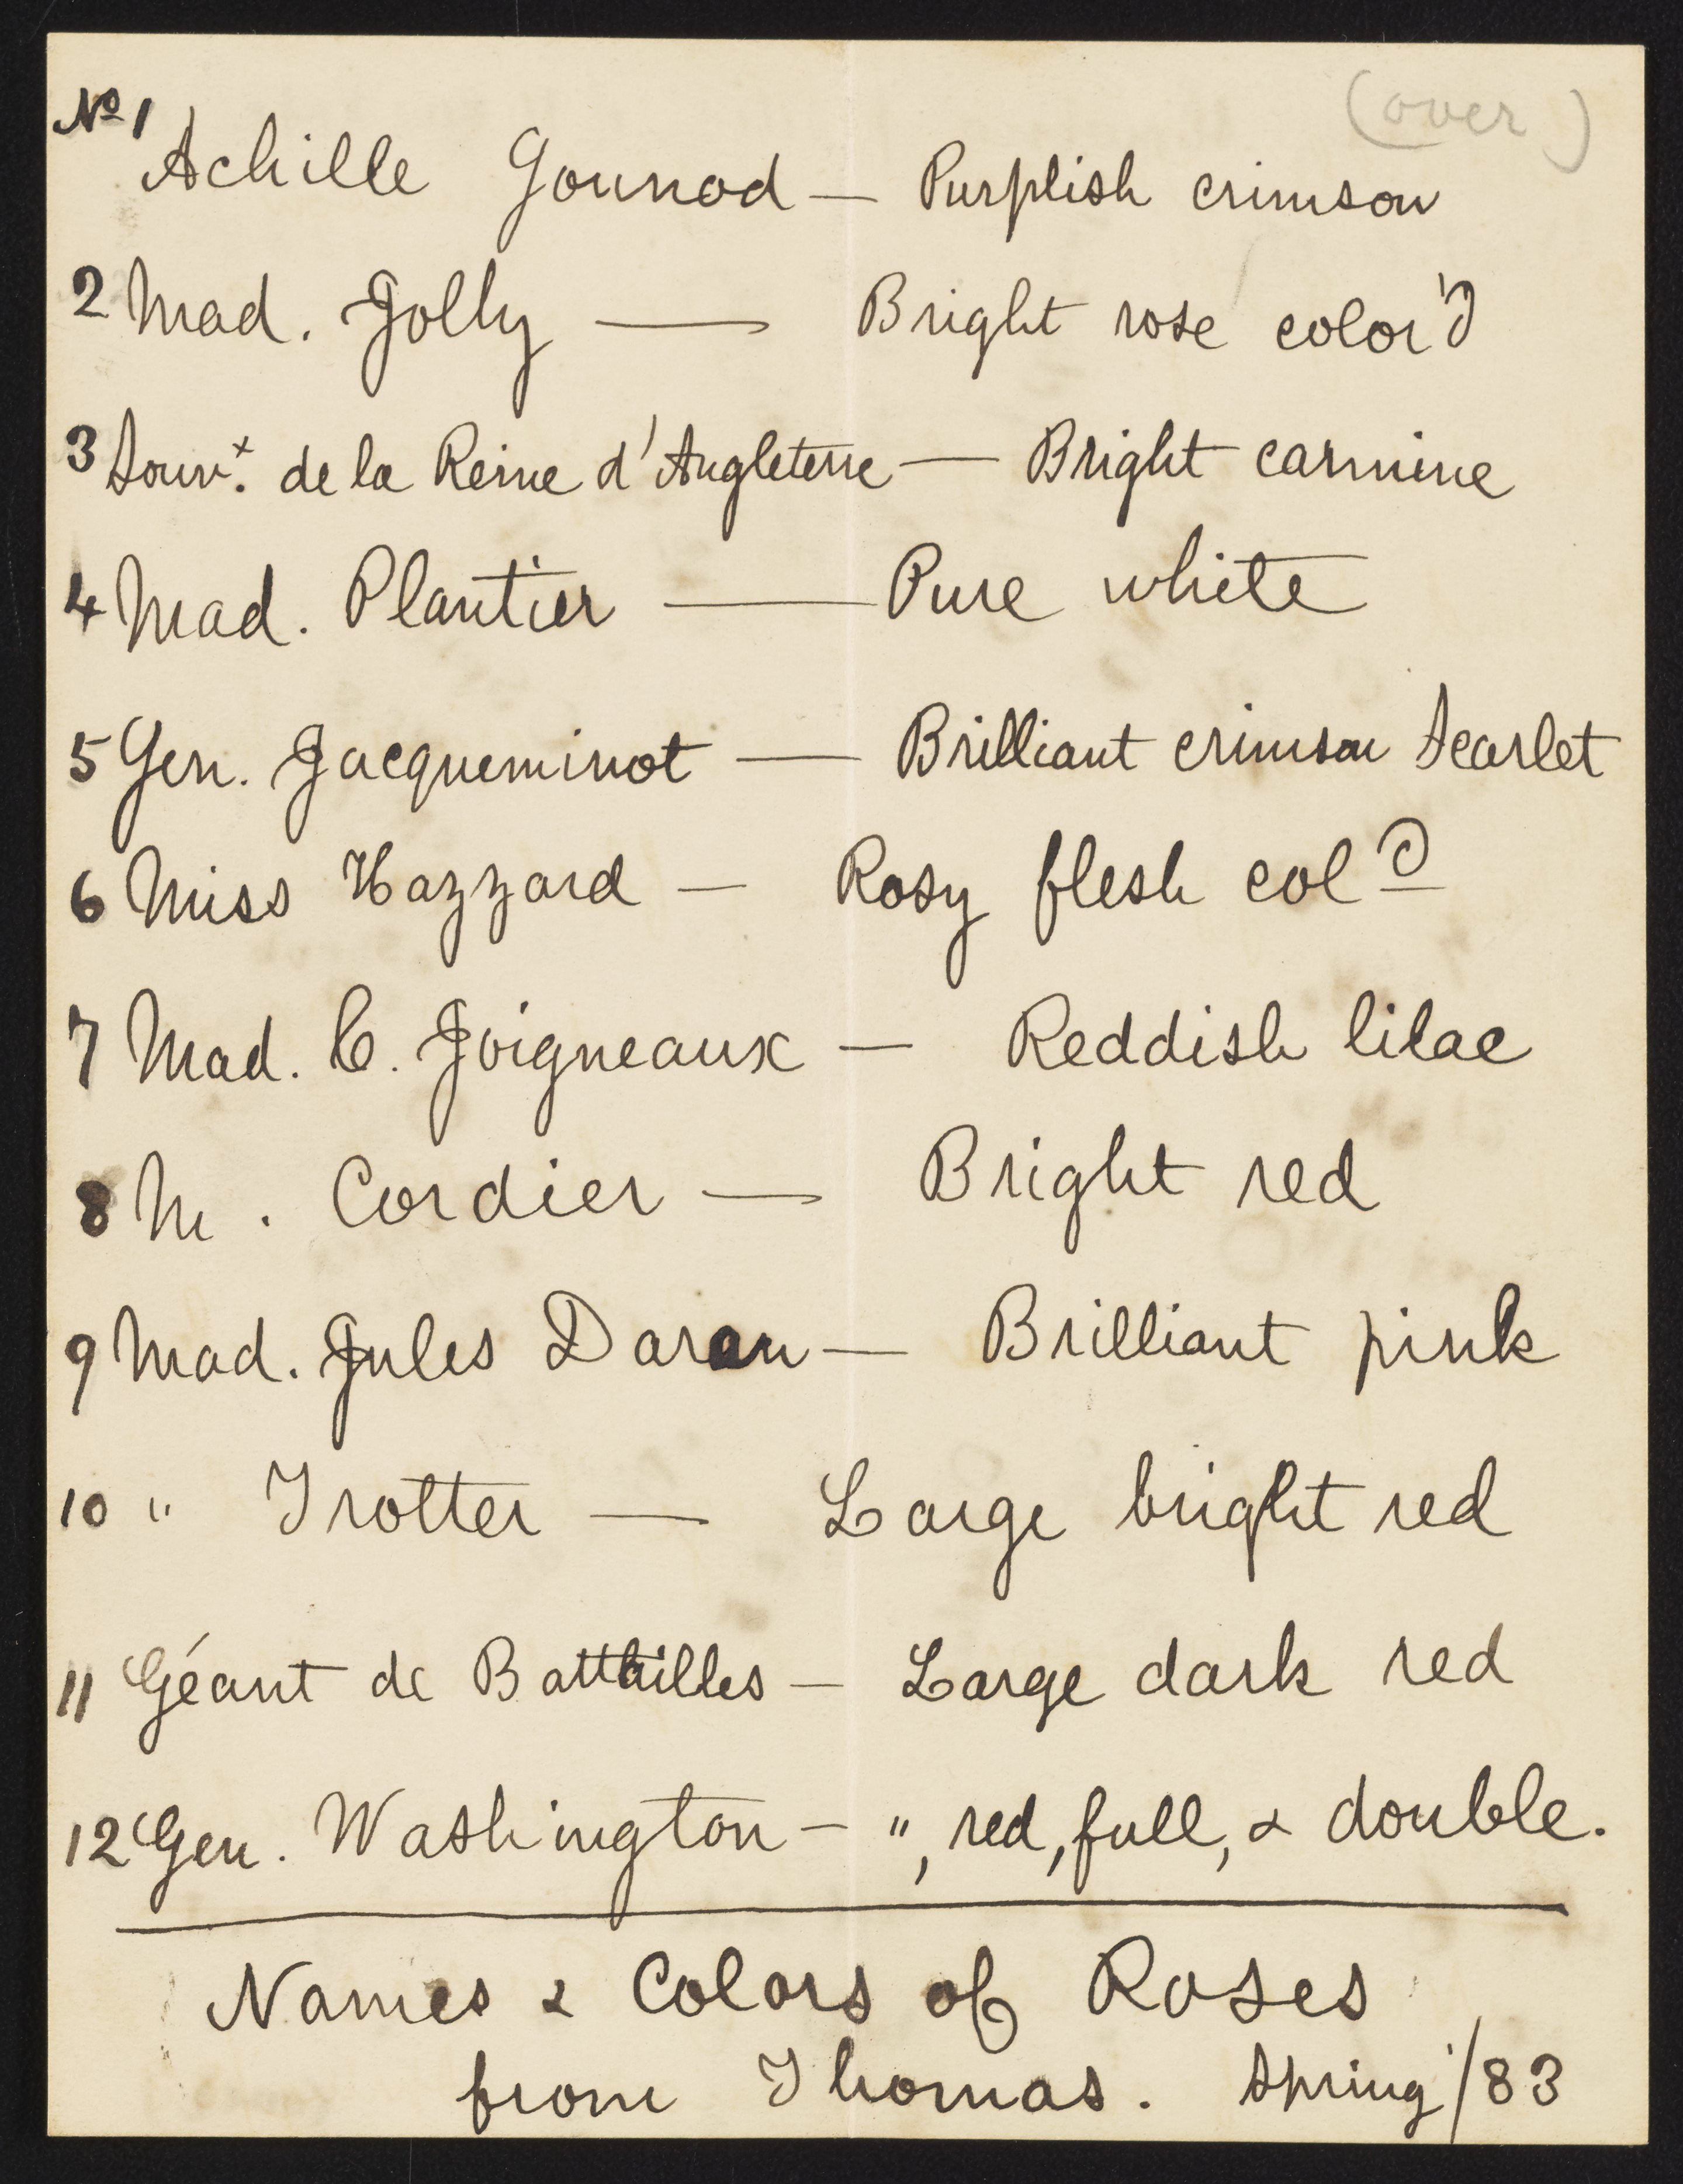 (over)
No 1 Achille Gounod — Purplish crimson
2 Mad. Jolly — Bright rose color'd
3 Souvt. de la Reine d'Angleterre — Bright carmine
4 Mad. Plantier — Pure white
5 Gen. Jacqueminot — Brilliant crimson scarlet
6 Miss Hazzard — Rosy flesh cold
7 Mad. C. Joigneaux — Reddish lilac
8 M. Cordier — Bright red
9 Mad. Jules Daran — Brilliant pink
10 " Trotter — Large bright red
11 Géant de Battailles — Large dark red
12 Gen. Washington — ", red, full, & double.
Names & Colors of Roses
from Thomas. Spring '/83